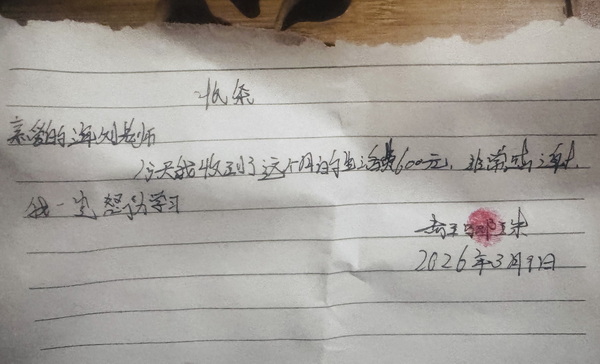 收条
亲爱的 老师
今天我收到了这个月的生活费600元，非常感谢
我一定努力学习
2026年3月9日